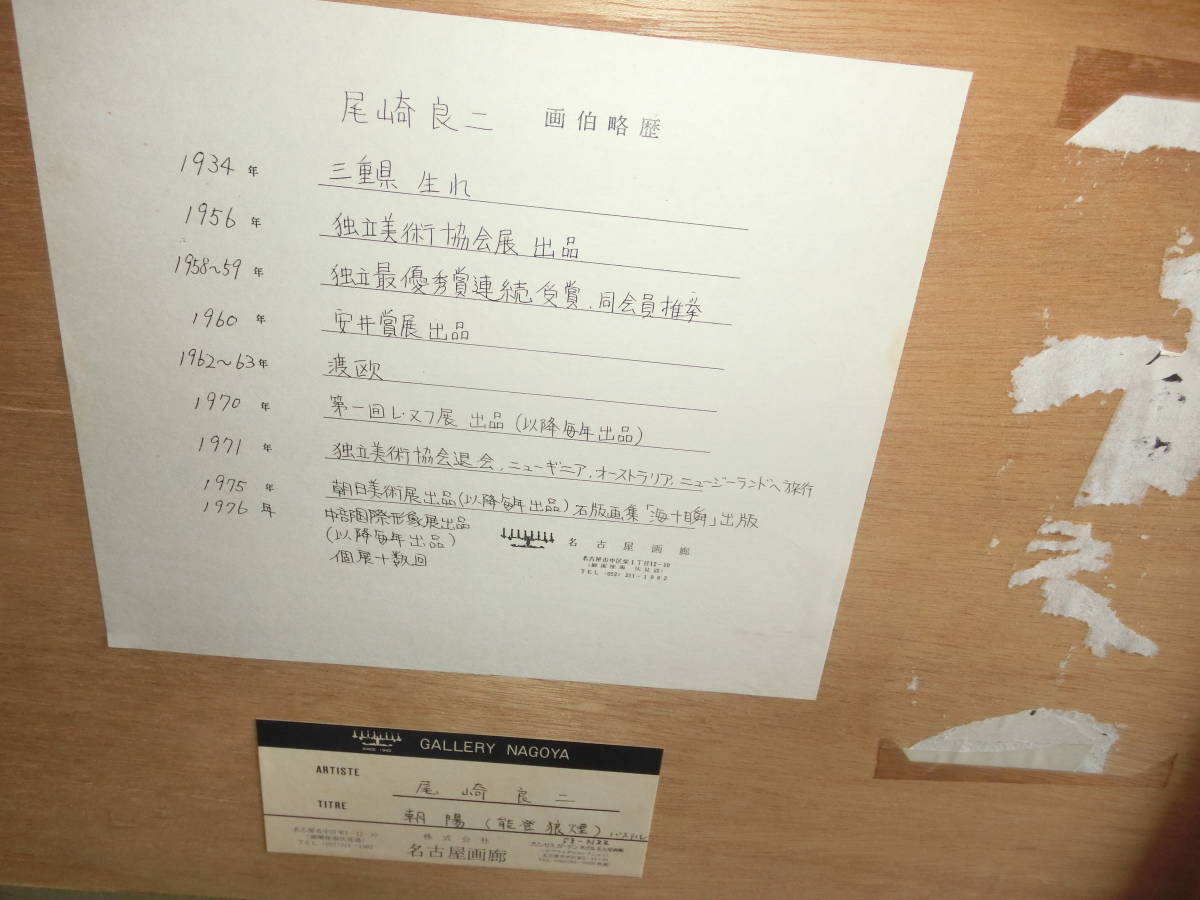 尾崎良二 画伯略歴
1934年 三重県 生れ
1956年 独立美術協会展 出品
1958~59年 独立最優秀賞連続受賞、同会員推挙
1960年 安井賞展出品
1962~63年 渡欧
1970年 第一回レ・ヌフ展 出品(以降毎年出品)
1971年 独立美術協会退会、ニューギニア、オーストラリア、ニュージーランドへ旅行
1975年 朝日美術展出品(以降毎年出品)石版画集「海十題」出版
1976年 中部国際形象展出品
(以降毎年出品)
個展十数回
名古屋画廊
名古屋市中区栄1丁目12-10
TEL (052) 211-1982
GALLERY NAGOYA
ARTISTE 尾崎良二
TITRE 朝陽(能登狼煙)パステル
株式会社
名古屋画廊